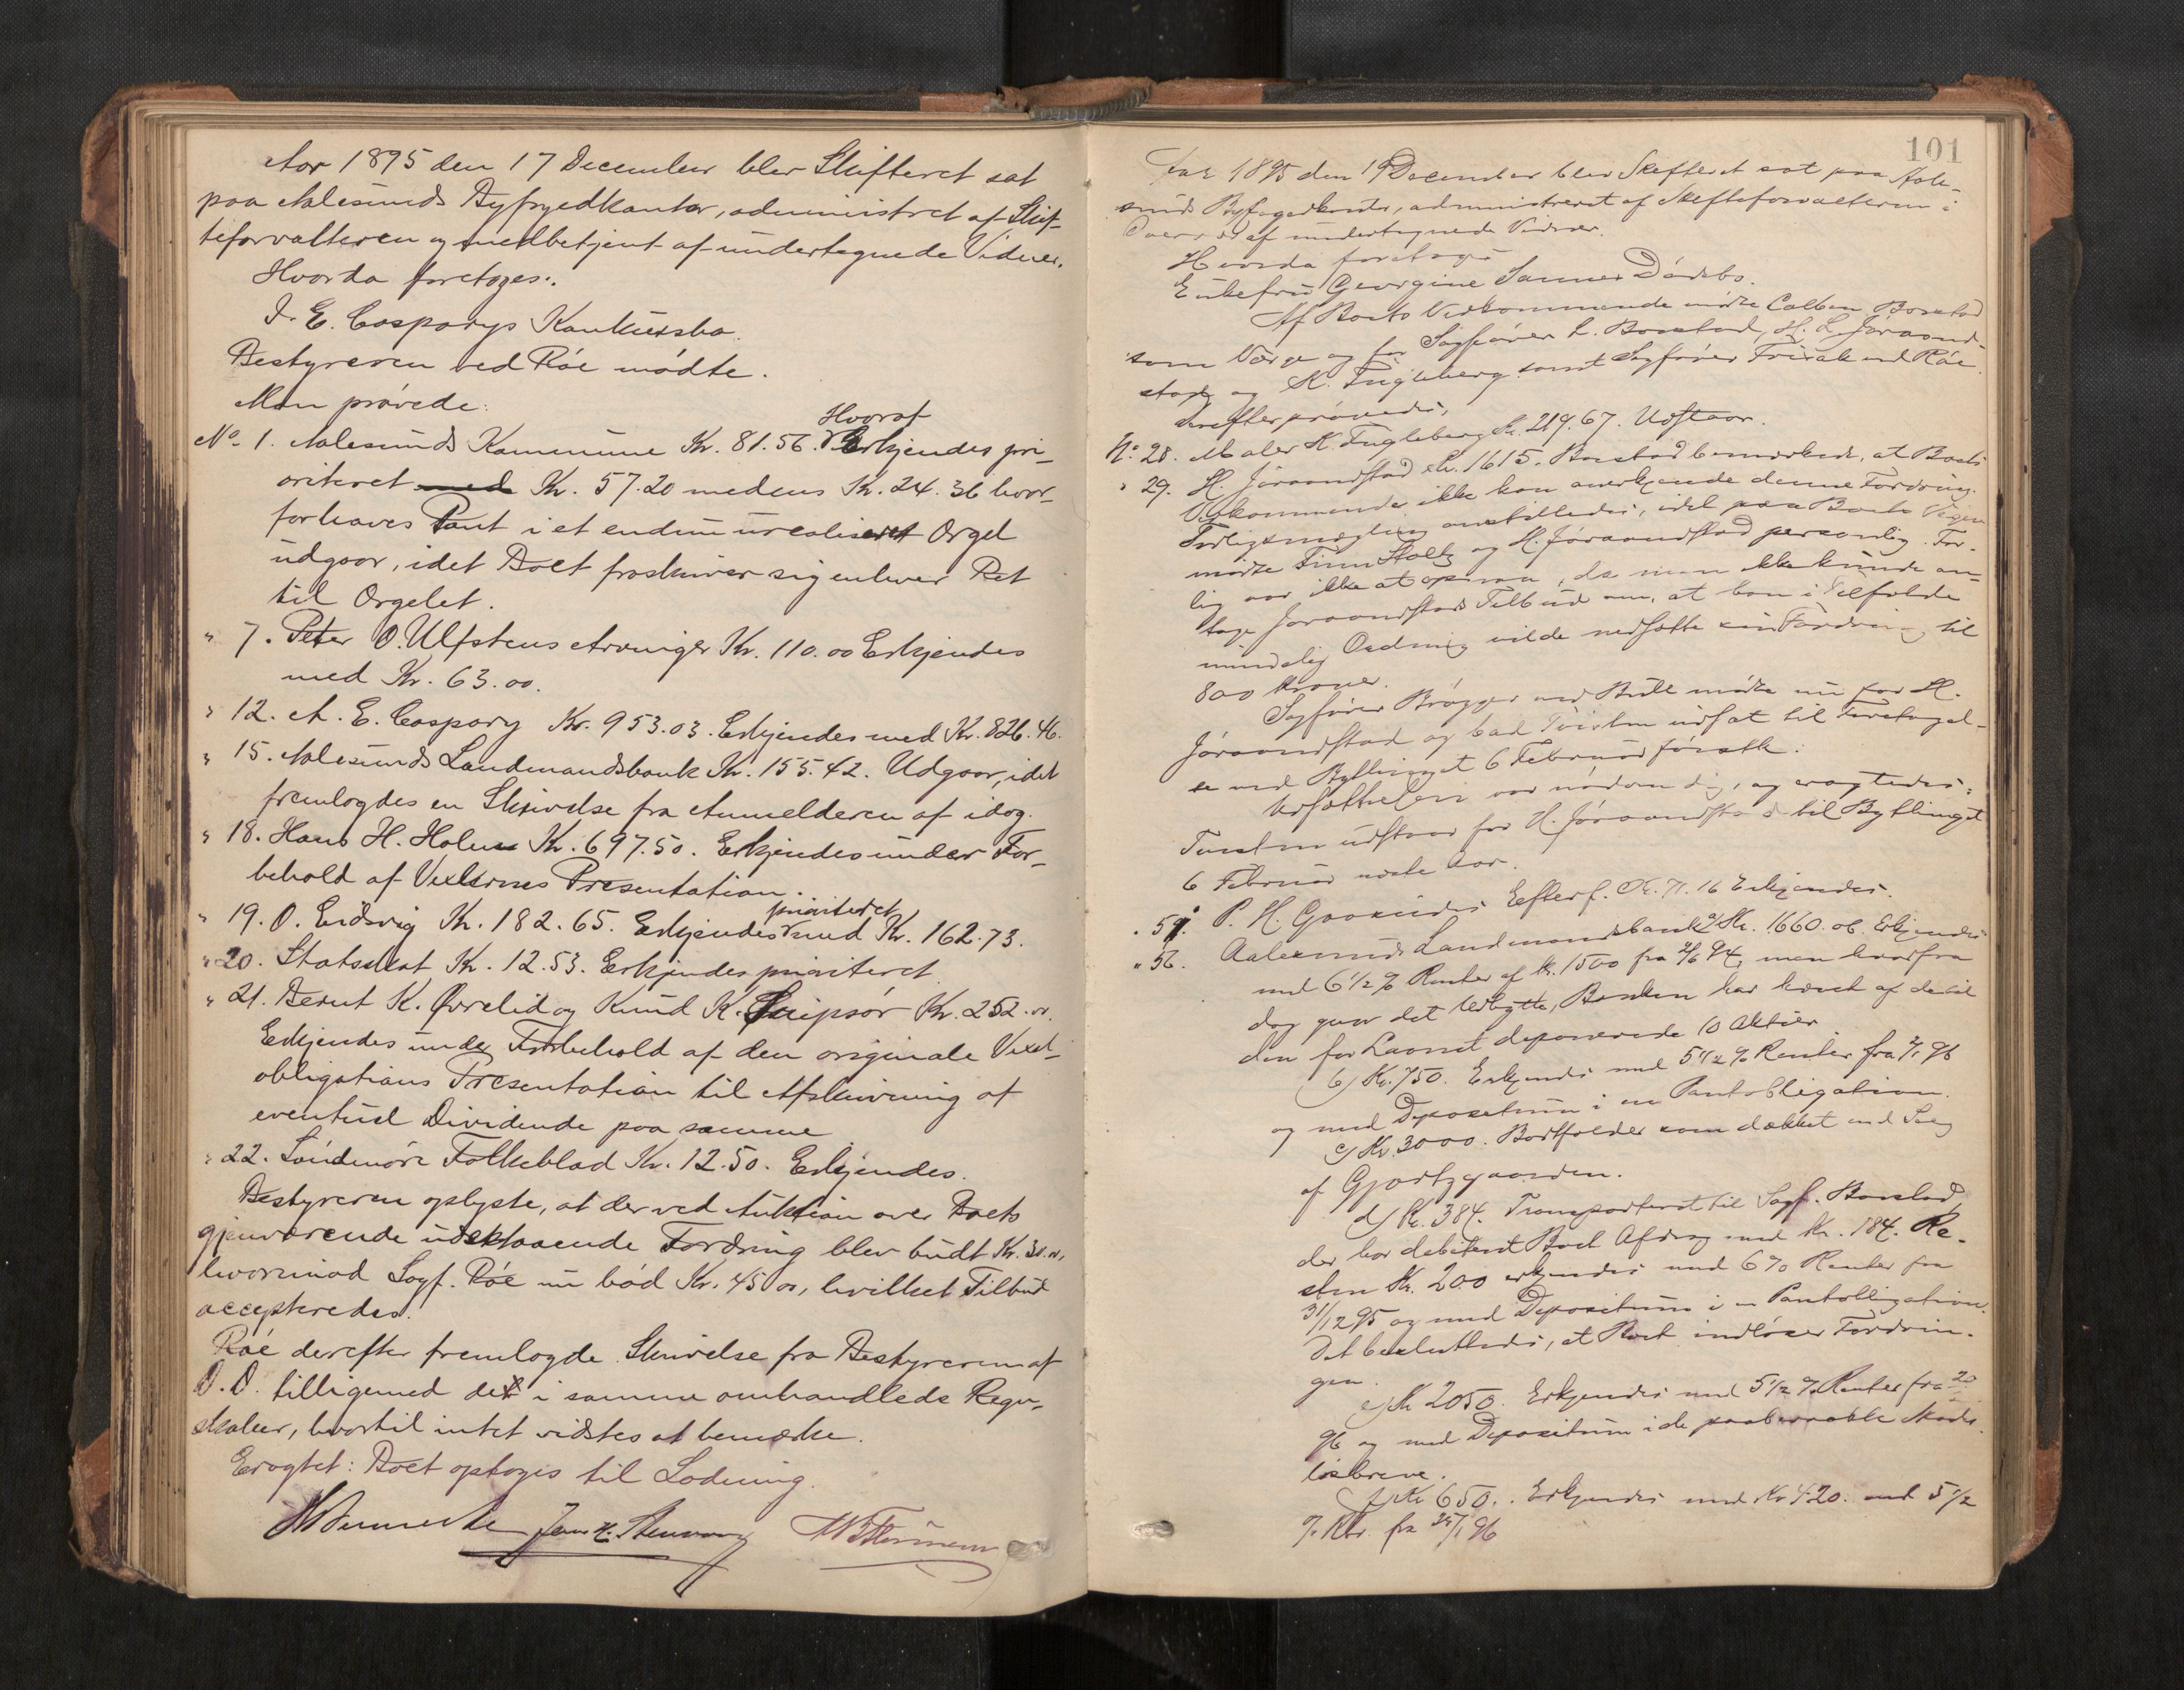 Aar 1895 den 17 December blev Skifteret sat
paa Aalesunds Byfogedkontor, administret af Skif-
teforvalteren og medbetjent af undertegnede Vidner.
Hvorda foretoges:
I. E. Casparys Konkursbo.
Bestyreren ved Róe mødte.
Man prøvede:
No 1. Aalesunds Kommune Kr. 81.56. Hvoraf Erkjendes pri-
oriteret Kr. 57.20 medens Kr. 24.36 hvor-
for haves Pant i et endnu urealiseret Orgel
udgaar, idet Boet fraskriver sig enhver Ret
til Orgelet.
" 7. Peter O. Ulfstens Arvinger Kr. 110.00 Erkjendes
med Kr. 63.00.
" 12. A. E. Caspary Kr. 953.03. Erkjendes med Kr. 826.46.
" 15. Aalesunds Landmandsbank Kr. 155.42. Udgaar, idet
fremlagdes en Skrivelse fra Anmelderen af idag.
" 18. Hans H. Holm Kr. 697.50. Erkjendes under For-
behold af Vexlernes Presentation.
" 19. O. Eidsvig Kr. 182.65. Erkjendes prioriteret med Kr. 162.73.
" 20. Statsskat Kr. 12.53. Erkjendes prioriteret
" 21. Berut K. Øvrelid og Knud K. Kr. 252.00.
Erkjendes under Forbehold af den originale Vexel-
obligations Presentation til Afskrivning af
eventuel Dividende paa samme
" 22. Søndmøre Folkeblad Kr. 12.50. Erkjendes.
Bestyreren oplyste, at der ved Auktion over Boets
gjenværende udestaaende Fordring blev budt Kr. 30.00,
hvorimod Sagf. Róe nu bød Kr. 45.00, hvilket Tilbud
accepteredes.
Róe derefter fremlagde Skrivelse fra Bestyreren af
D. D. tilligemed det i samme omhandlede Regn-
skaber, hvortil intet vidstes at bemærke.
Eragtet: Boet optages til Slutning.
101
Aar 1895 den 19 December blev Skifteret sat paa Aale-
sunds Byfogedkontor, administreret af Skifteforvalteren i
Overvær af undertegnede Vidner.
Hvorda foretoges
Enkefru Georgine Sanner Dødsbo.
Af Boets Vedkommende mødte Borstad
som Værge og for Sagfører L. Borstad, H. L. Jøraand-
stad og K. Fugleberg samt Sagfører ved Róe.
Derefter prøvedes,
No 28. Maler K. Fugleberg Kr. 219.67. Udstaar.
" 29. H. Jøraandstad Kr. 1615. Borstad bemærkede, at Boets
Vedkommende ikke kan anerkjende denne Fordring.
Forligsmægling anstilledes, idet paa Boets Vegne
mødte Finn Stoltz og H. Jøraandstad personlig. For-
lig var ikke at opnaa, da man ikke kunde an-
tage Jøraandstads Tilbud om, at han i Tilfælde
mindelig Ordning vilde nedsætte sin Fordring til
800 Kroner.
Sagfører Brøgger ved Bull mødte nu for H.
Jøraandstad og bad Tvisten udsat til Foretagel-
se ved Bythinget 6 Februar førstk:
Udsættelsen var nødvendig, og eragtedes:
Tvisten udstaar for H. Jøraandstad til Bythinget
6 Februar næste Aar.
" 51. P. H. Efterf. Kr. 71.16 Erkjendes.
" 56. Aalesunds Landmandsbank a/ Kr. 1660.06. Erkjendes
med 6 1/2 % Renter af Kr. 1500 fra 94, men hvorfra
dog gaar det Udbytte, Banken har hævet af de til
den for Laanet deponerede 10 Aktier
b/ Kr. 750. Erkjendes med 5 1/2 % Renter fra 96
og med Depositum i en Pantobligation.
c/ Kr. 3000. Bortfalder som dækket ved Salg
af Gjærtzgaarden.
d/ Kr. 384. Transporteret til Sagf. Borstad,
der har debiteret Boet Afdrag med Kr. 184. Re-
sten Kr. 200 erkjendes med 6 % Renter fra
31/12 95 og med Depositum i en Pantobligation.
Det besluttedes, at Boet indløser Fordrin-
gen.
e/ Kr 2050. Erkjendes med 5 1/2 % Renter fra
96 og med Depositum i de paaberaabte Skades-
løsbreve.
f/ Kr 650. Erkjendes med Kr 420. med 5 1/2
% Rtr. fra 96